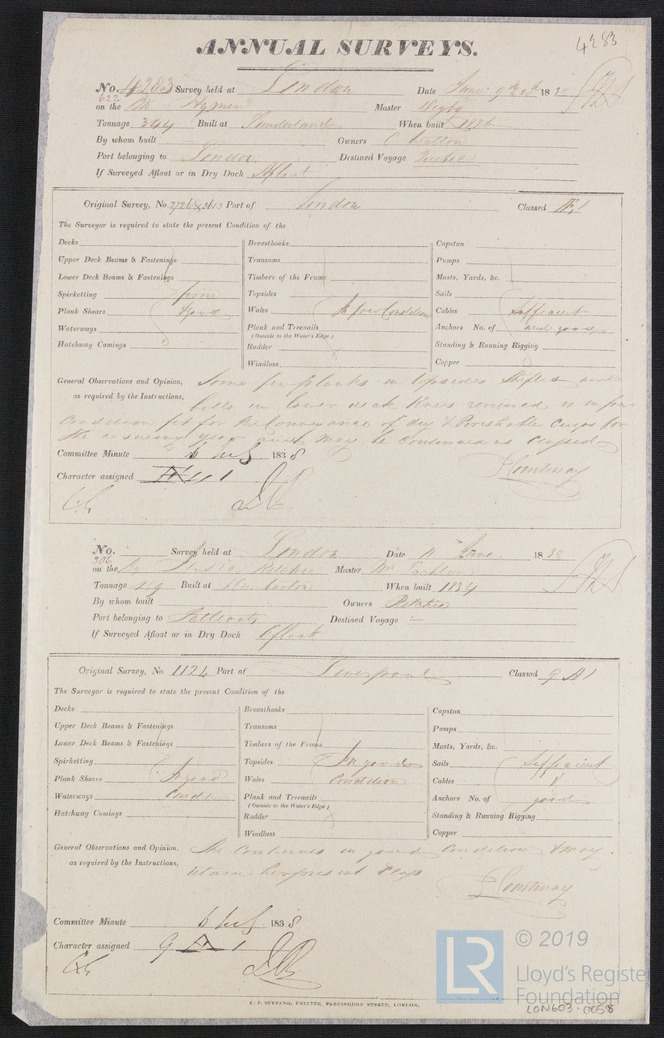 4283
ANNUAL SURVEYS.
No. 4283 Survey held at London Date 18 38
622
on the Hymen Master
Tonnage 344 Built at Sunderland When built 1826
By whom built Owners
Port belonging to London Destined Voyage Quebec
If Surveyed Afloat or in Dry Dock Afloat
Original Survey, No. Port of London Classed Æ1
The Surveyor is required to state the present Condition of the
Decks Breasthooks Capstan
Upper Deck Beams & Fastenings Transoms Pumps
Lower Deck Beams & Fastenings Timbers of the Frame Masts, Yards, &c.
Spirketting Topsides Sails
Plank Shears good Wales Condition Cables Sufficient
Waterways Plank and Treenails Anchors No. of and good
(Outside to the Water's Edge.)
Hatchway Comings Rudder Standing & Running Rigging
Windlass Copper
General Observations and Opinion, Some few planks in topsides shifted and
as required by the Instructions, bolts in lower deck Knees renewed, is in
Condition fit for the Conveyance of dry & Perishable Cargo for
the ensuing year and may be continued as classed
Committee Minute 6 July 1838
Character assigned Æ 1
Courtenay
No. Survey held at London Date 11 June 1838
306
on the Master
Tonnage 49 Built at Dumbarton When built 1834
By whom built Owners
Port belonging to Destined Voyage –
If Surveyed Afloat or in Dry Dock Afloat
Original Survey, No 1124 Port of Liverpool Classed 9 A1
The Surveyor is required to state the present Condition of the
Decks Breasthooks Capstan
Upper Deck Beams & Fastenings Transoms Pumps
Lower Deck Beams & Fastenings Timbers of the Frame Masts, Yards, &c.
Spirketting Topsides In good Sails Sufficient
Plank Shears In good Wales Condition Cables &
Waterways Condn Plank and Treenails Anchors No. of good
(Outside to the Water's Edge)
Hatchway Comings Rudder Standing & Running Rigging
Windlass Copper
General Observations and Opinion, She continues in good Condition & may
as required by the Instructions, retain her present Class
Courtenay
Committee Minute 6 July 1838
Character assigned 9 A 1
G. F. SEYFANG, PRINTER, FARRINGDON STREET, LONDON.
LR
© 2019
Lloyd's Register
Foundation
LON603-0058